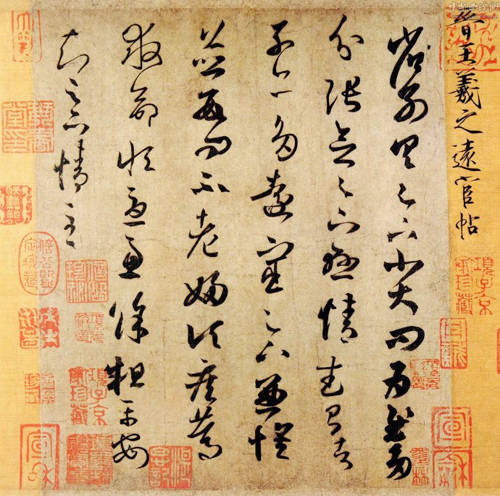 晉王羲之遠宦帖
省別具足下小大問為慰多
分張念足下懸情武昌諸
子亦多遠宦足下兼懷
並數問不老婦頃疾篤
救命恒憂慮餘粗平安
知足下情至
項子京家珍藏